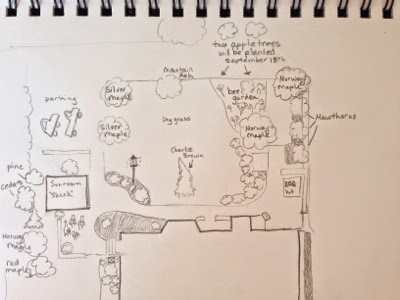 two apple trees
will be planted
September 18th
mountain
Ash
Silver
maple
Norway
maple
bee
garden
parking
Hawthorns
Silver
maple
Dry grass
Norway
maple
Charlie
Brown
pine
cedar
Sunroom
"Shack"
BBQ
hut
Norway
maple
red
maple